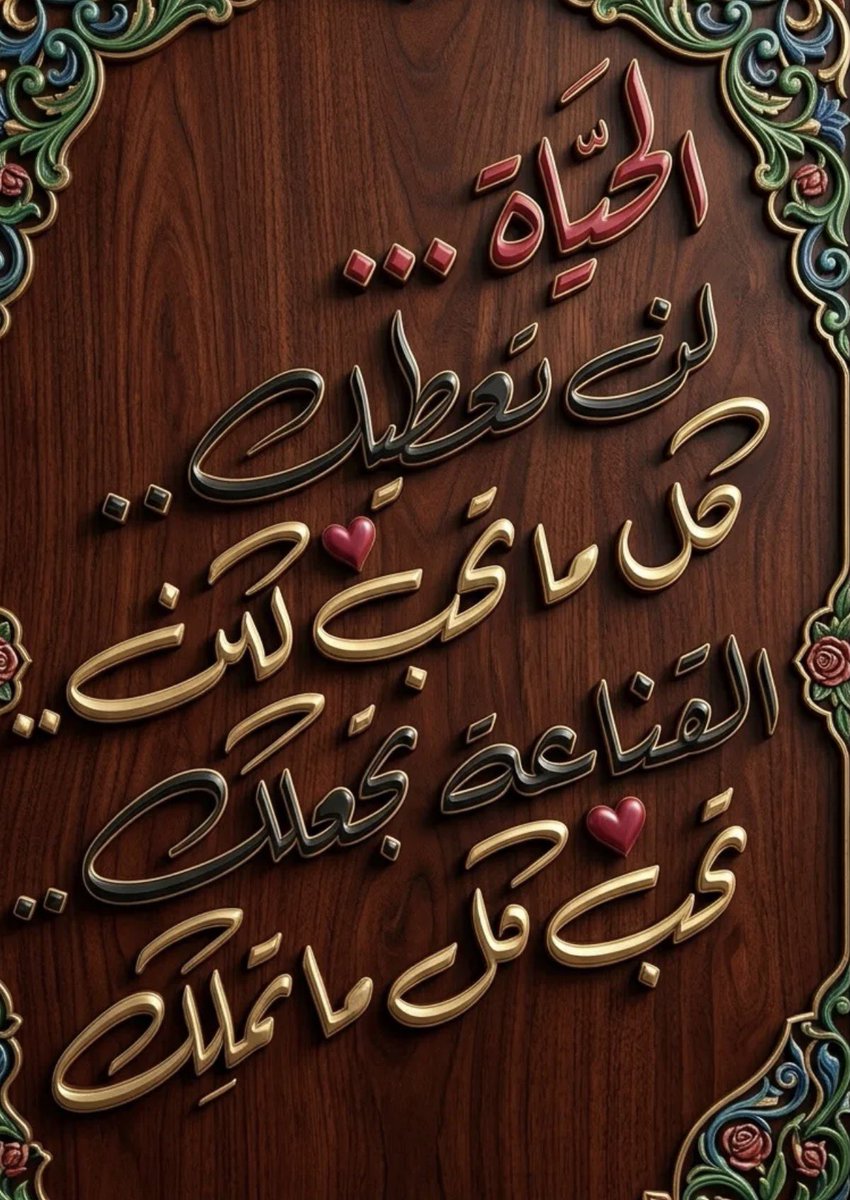 الحَيَّاة ...
لن تعطيك ..
كل ما تحب لكن ..
القناعة تجعلك ..
تحب كل ما تملِك